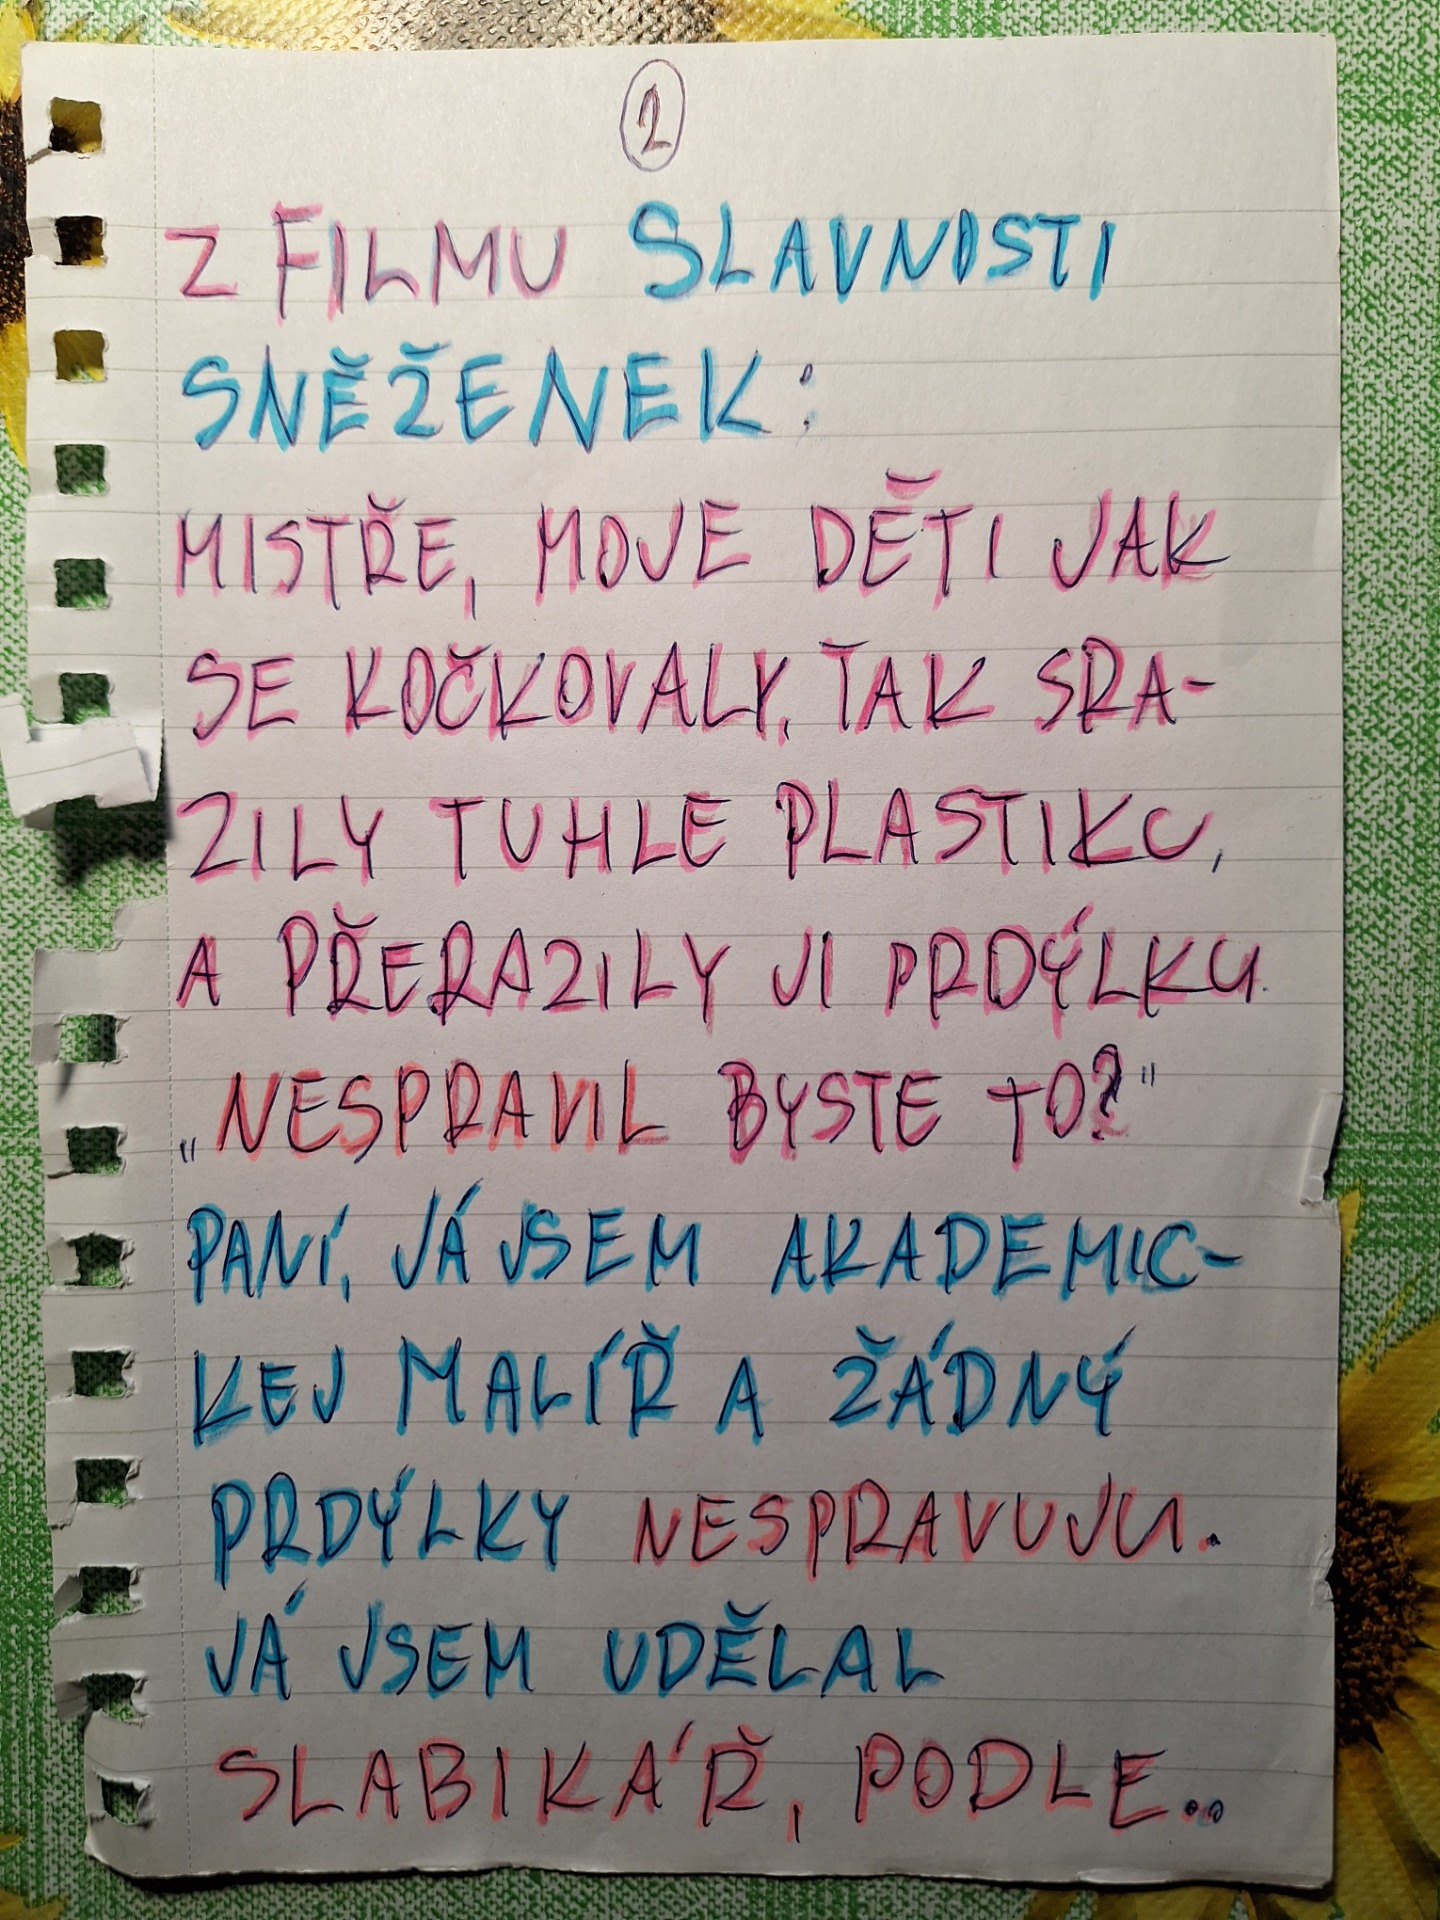 2
Z FILMU SLAVNOSTI
SNĚŽENEK:
MISTŘE, MOJE DĚTI JAK
SE KOČKOVALY, TAK SRA-
ZILY TUHLE PLASTIKU,
A PŘERAZILY JI PRDÝLKU.
„NESPRAVIL BYSTE TO?"
PANÍ, JÁ JSEM AKADEMIC-
KEJ MALÍŘ A ŽÁDNÝ
PRDÝLKY NESPRAVUJU.
JÁ JSEM UDĚLAL
SLABIKÁŘ, PODLE...